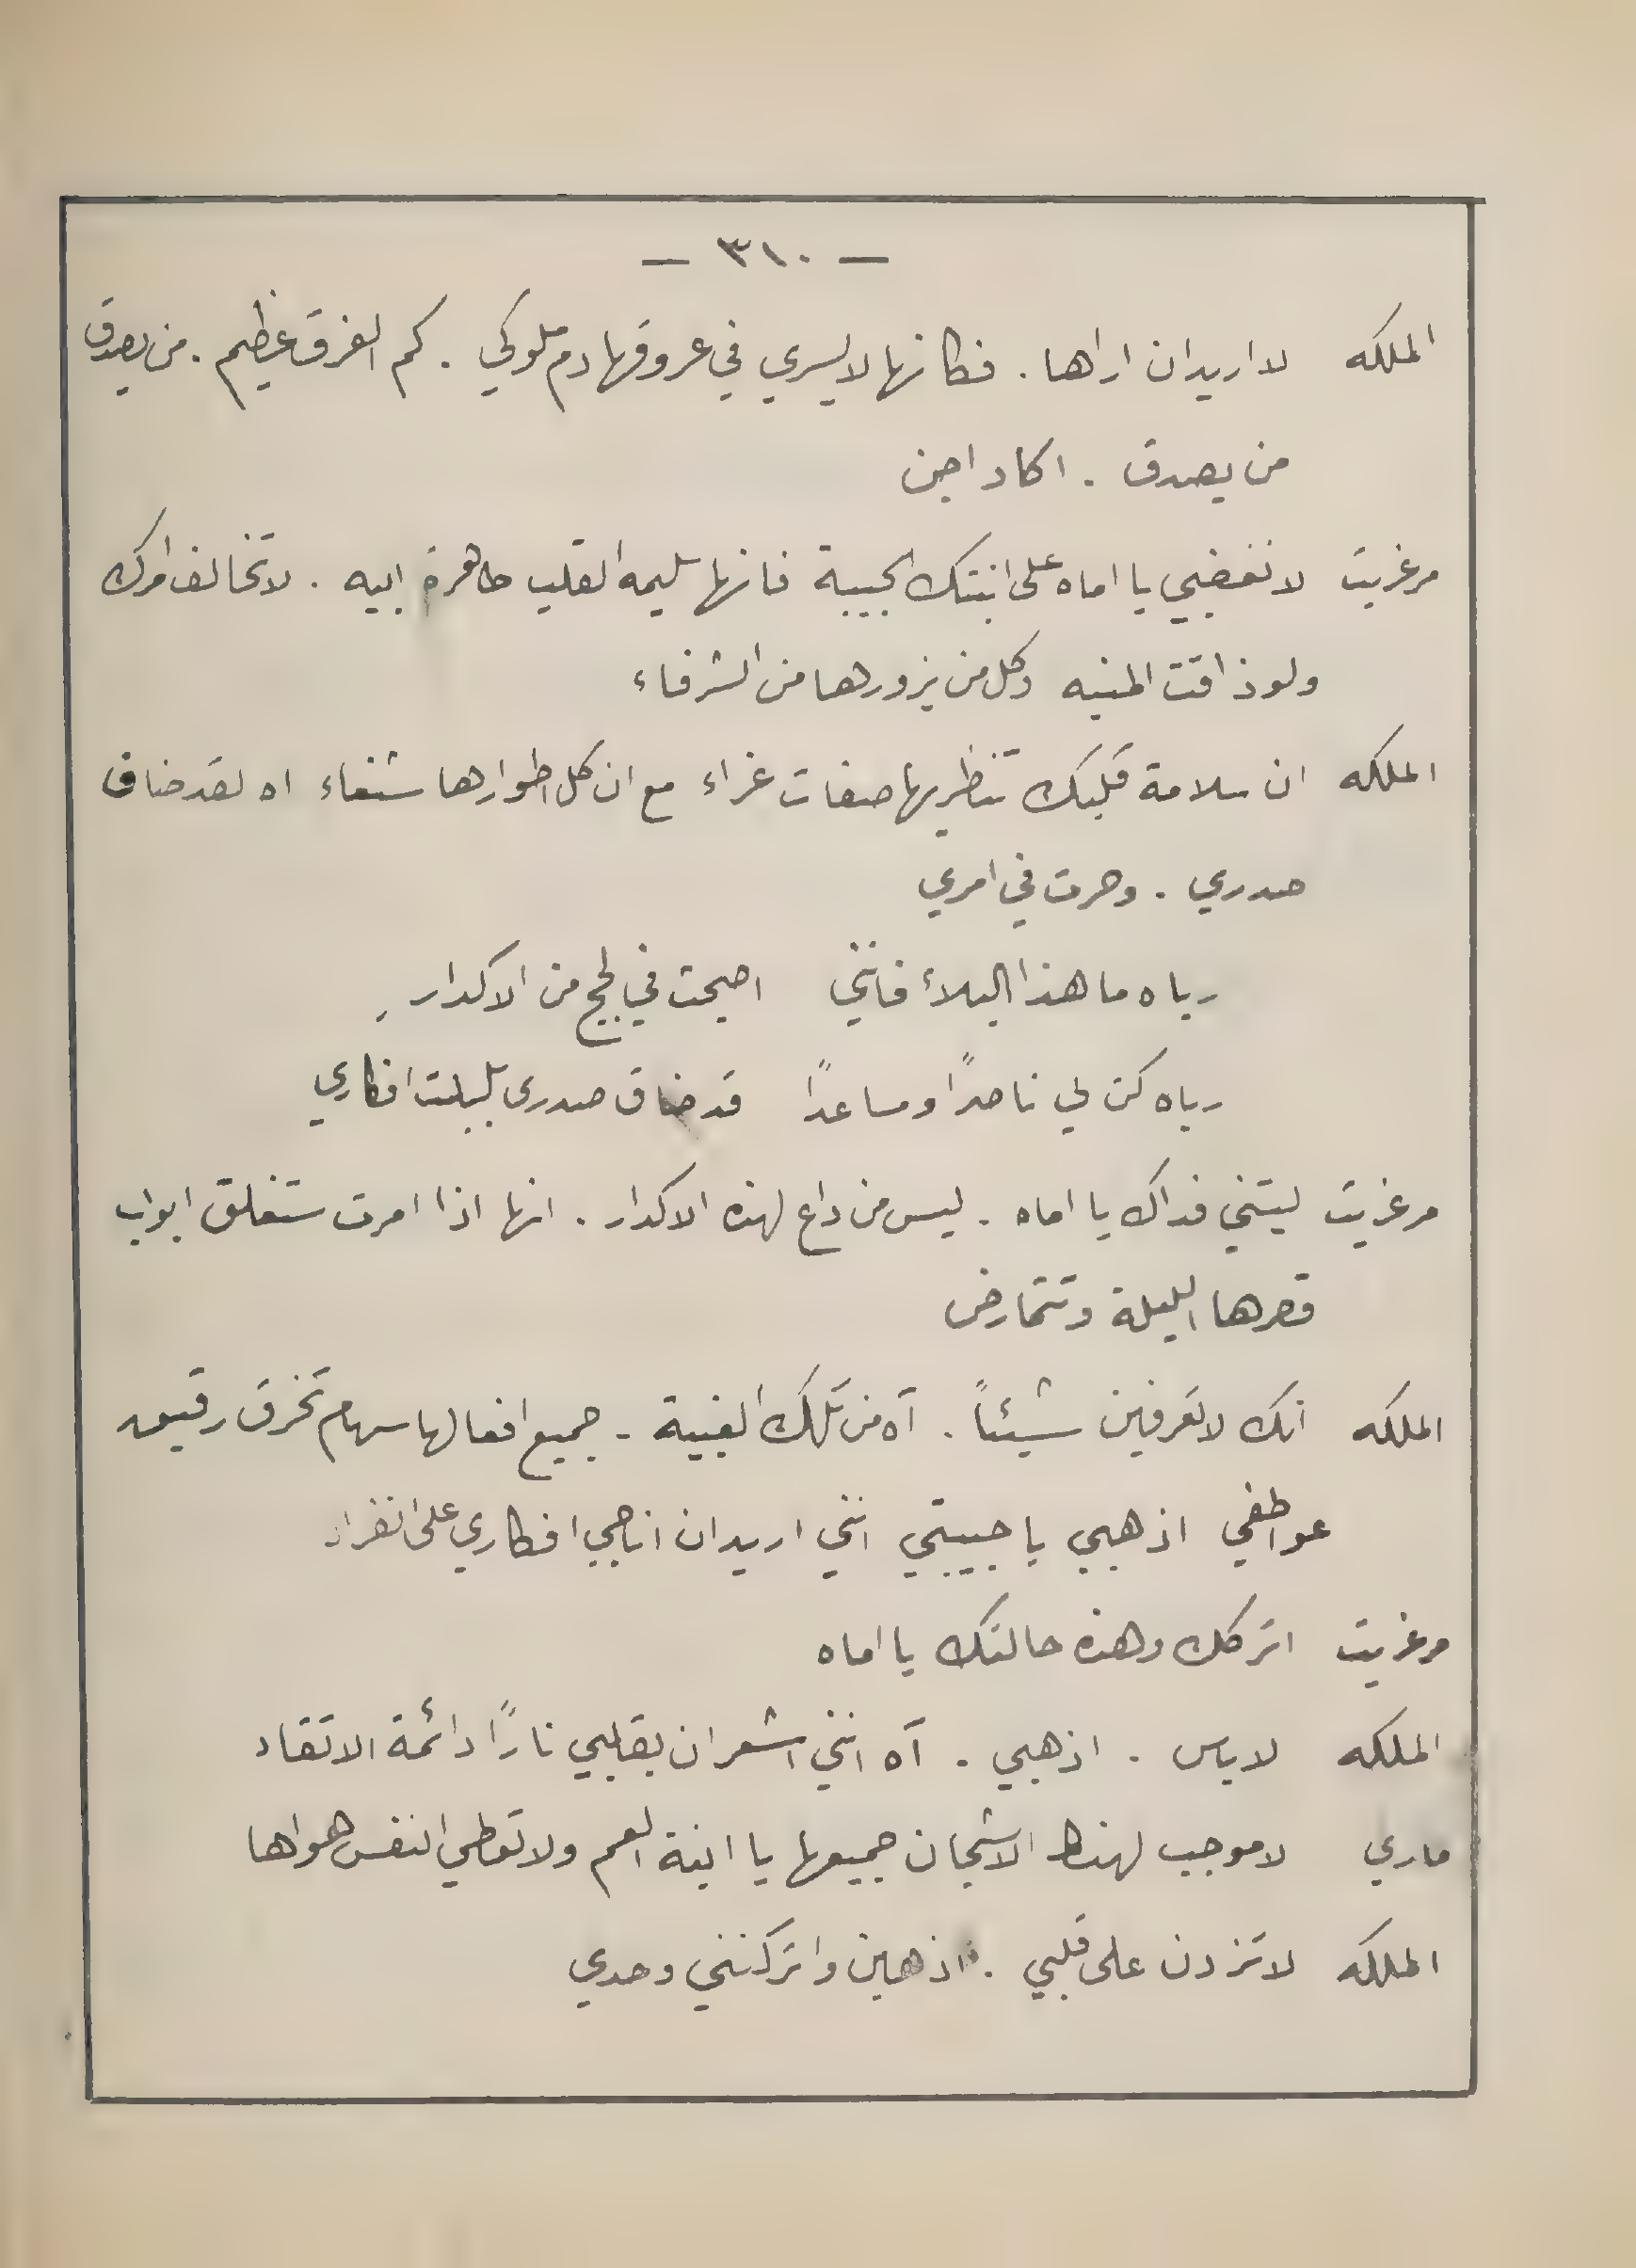 — ٣١٠ —
الملكه لا اريد ان اراها . فكانها لا يسري في عروقها دم ملوكي . كم الفرق عظيم . من يصدق
من يصدق . اكاد اجن
مرغريت لا تغضبي يا اماه على ابنتك الحبيبة فانها سليمه القلب طاهرة ابيه . لا تخالف امرك
ولو ذاقت المنيه وكل من يزورها من الشرفاء
الملكه ان سلامة قلبك تنظر بها صفات غراء مع ان كل اطوارها شنعاء اه لقد ضاق
صدري . وحرت في امري
رباه ما هذا البلاء فانني اصبحت في لجج من الاكدار
رباه كن لي ناصرًا ومساعدًا قد ضاق صدري بلبلت افكاري
مرغريت ليتني فداك يا اماه . ليس من داع لهذه الاكدار . انها اذا امرت ستغلق ابواب
قصرها الليلة وتتمارض
الملكه انك لا تعرفين شيئاً . آه من تلك الغبية . جميع افعالها سهام تخرق رقيق
عواطفي اذهبي يا حبيبتي انني اريد ان اناجي افكاري على انفراد
مرغريت اتركك وهذه حالتك يا اماه
الملكه لا باس . اذهبي . آه انني اشعر ان بقلبي نارًا دائمة الاتقاد
ماري لا موجب لهذه الاشجان جميعها يا ابنة العم ولا تعطي النفس هواها
الملكه لا تزدن على قلبي . اذهبن واتركنني وحدي